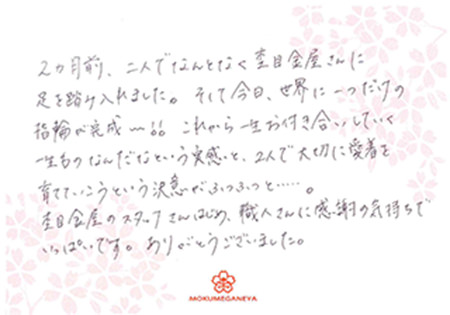 2ヵ月前、二人でなんとなく杢目金屋さんに
足を踏み入れました。そして今日、世界に一つだけの
指輪が完成〜!! これから一生お付き合いしていく
一生ものなんだなという実感と、2人で大切に愛着を
育てていこうという決意がふつふつと……。
杢目金屋のスタッフさんはじめ、職人さんに感謝の気持ちで
いっぱいです。ありがとうございました。
MOKUMEGANEYA